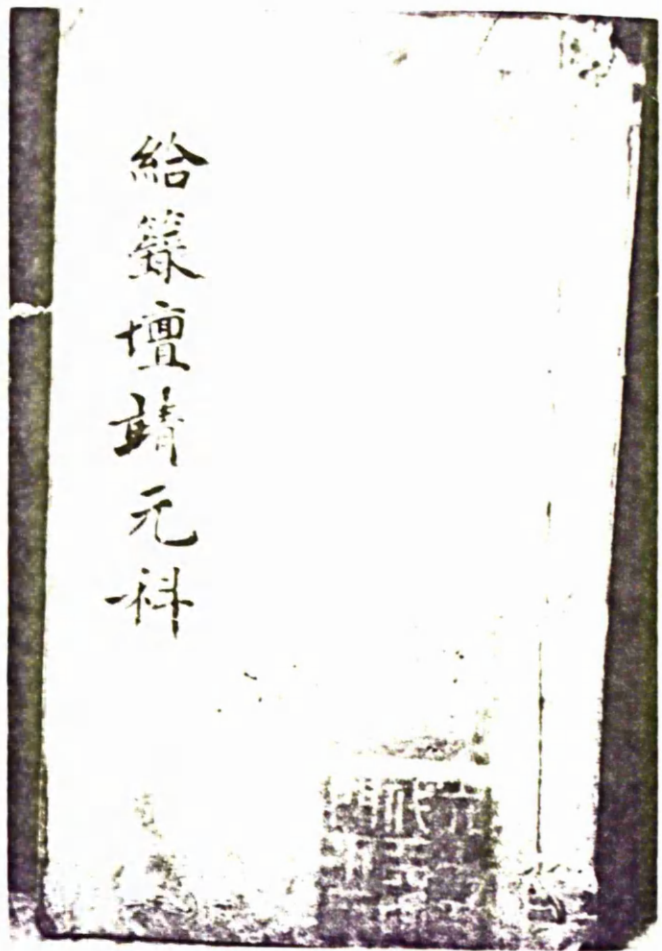 給籙壇靖元科